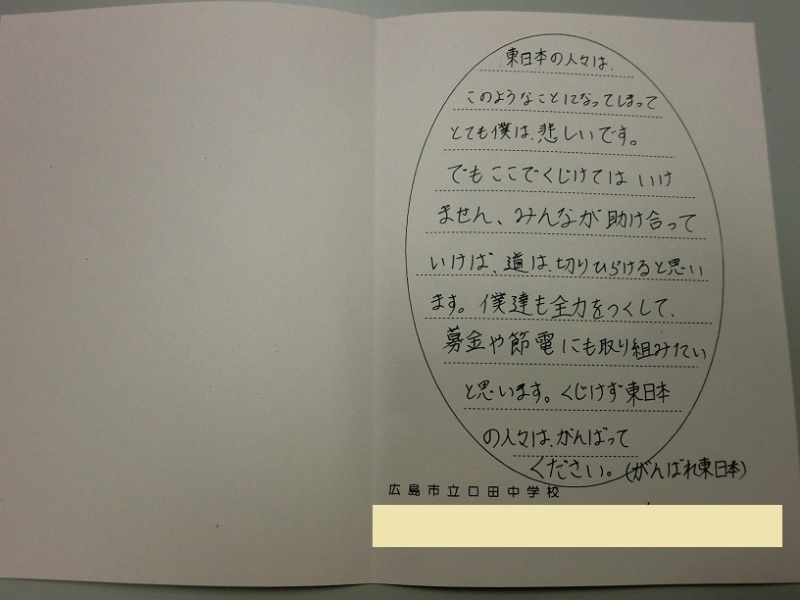 東日本の人々は、
このようなことになってしまって
とても僕は、悲しいです。
でもここでくじけてはいけ
ません、みんなが助け合って
いけば、道は、切りひらけると思い
ます。僕達も全力をつくして、
募金や節電にも取り組みたい
と思います。くじけず東日本
の人々は、がんばって
ください。(がんばれ東日本)
広島市立口田中学校